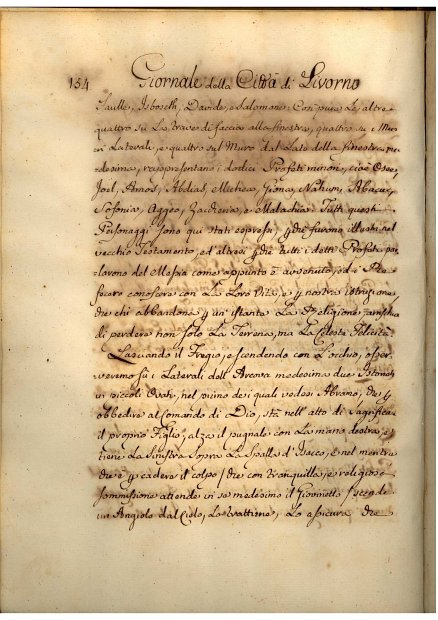 154 Giornale della Città di Livorno
Saulle, Isboseth, Davide, e Salomone. Con pure Le altre
quattro su La Trave di faccia alla finestra, quattro su i Mu-
ri Laterali, e quattro sul Muro dal Lato della finestra me-
desima, rappresentano i dodici Profeti minori, cioè Osea
Joel, Amos, Abdias, Michea, Giona, Nahum, Abacuc,
Sofonia, Aggeo, Zaccheria, e Malachia: Tutti questi
Personaggi sono qui stati espressi, furono illustri nel
vecchio Testamento, ed altresì tutti i detti Profeti par-
larono del Messia come appunto è avvenuto, ed i Re
fecero conoscere con La Loro Vita, e nostra istruzione,
che chi abbandona un' istante La Religione arrischia
di perdere non solo La Terrena, ma La Celeste Felicità.
Lasciando il Fregio, e scendendo con L'occhio, osser-
veremo sù i Laterali dell' Arcova medesima due Istorie
in piccoli Ovati, nel primo de i quali vedesi Abramo, che
obbedire al Comando di Dio, stà nell' atto di Sagrificare
il proprio Figlio, alza il pugnale con La mano destra, e
tiene La Sinistra Sopra La Spalla d' Isacco, e nel mentre
che è cadere il colpo / che con tranquilla, e religiosa
sommissione attende in se medesimo il Giovinetto / scende
un Angiolo dal Cielo, Lo trattiene, Lo assicura che